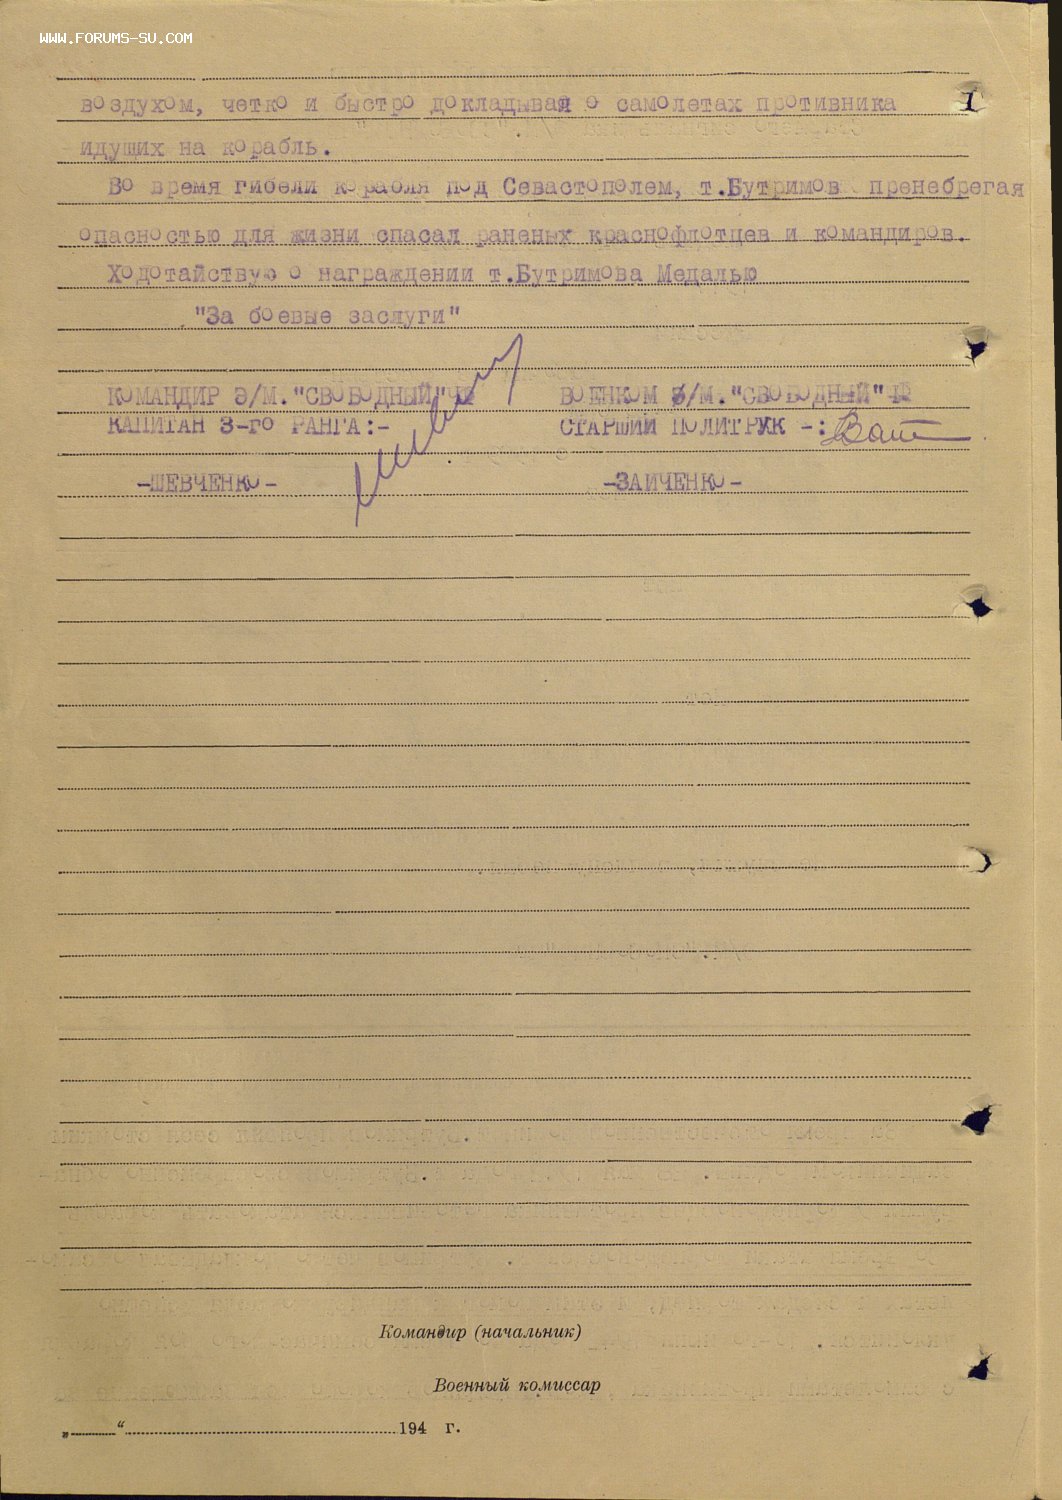 WWW.FORUMS-SU.COM
1
воздухом, четко и быстро докладывая о самолетах противника
идущих на корабль.
Во время гибели корабля под Севастополем, т.Бутримов пренебрегая
опасностью для жизни спасал раненых краснофлотцев и командиров.
Ходотайствую о награждении т.Бутримова Медалью
"За боевые заслуги"
КОМАНДИР Э/М. "СВОБОДНЫЙ" ВОЕНКОМ Э/М. "СВОБОДНЫЙ"
КАПИТАН 3-го РАНГА:- СТАРШИЙ ПОЛИТРУК -:
-ШЕВЧЕНКО- -ЗАИЧЕНКО-
Командир (начальник)
Военный комиссар
„ “ 194 г.